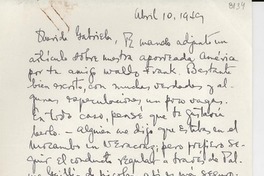 8134
Abril 10. 1949
Querida Gabriela, Te mando adjunto un
artículo sobre nuestra aporreada América
por tu amigo Waldo Frank. Bastante
bien escrito, con muchas verdades y al-
gunas especulaciones un poco vagas.
En todo caso, pensé que te gustaría
verlo. Alguien me dijo que estabas en el
Mocambo en Veracruz, pero prefiero se-
guir el conducto regular a través de Pal-